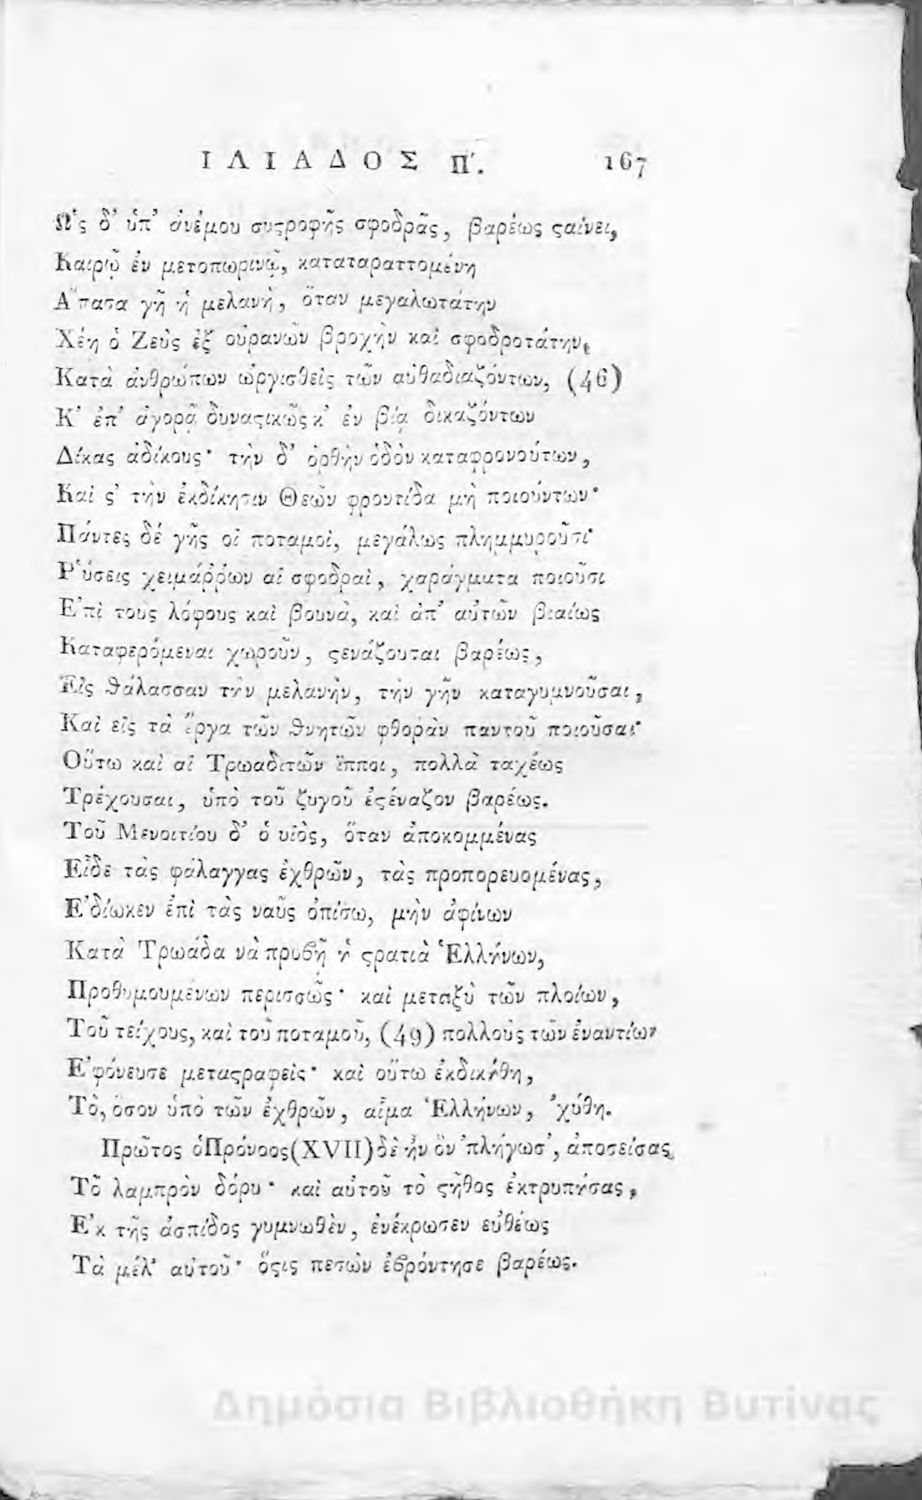 ΙΛΙΑΔΟΣ Π'. 167
Ω῾ς δ' ὑπ' ἀνέμου συϛροφῆς σφοδρᾶς, βαρέως ϛαίνει,
Καιρῷ ἐν μετοπωρινῷ, καταταραττομένη
Α῞πασα γῆ ἡ μελανὴ, ὅταν μεγαλωτάτην
Χέῃ ὁ Ζεὺς ἐξ οὐρανῶν βροχὴν καὶ σφοδροτάτην,
Κατὰ ἀνθρώπων ὠργισθεὶς τῶν αὐθαδιαζόντων, (48)
Κ' ἐπ' ἀγορᾷ δυναϛικῶς κ' ἐν βίᾳ δικαζόντων
Δίκας ἀδίκους· τὴν δ' ὀρθὴν ὁδὸν καταφρονούτων,
Καὶ ϛ' τὴν ἐκδίκησιν Θεῶν φροντίδα μὴ ποιούντων·
Πάντες δέ γῆς οἱ ποταμοὶ, μεγάλως πλημμυροῦσι·
Ρ῾ύσεις χειμάῤῥων αἱ σφοδραὶ, χαράγματα ποιοῦσι
Ε᾿πὶ τοὺς λόφους καὶ βουνὰ, καὶ ἀπ' αὐτῶν βιαίως
Καταφερόμεναι χωροῦν, ϛενάζουται βαρέως,
Εἰς θάλασσαν τὴν μελανὴν, τὴν γῆν καταγυμνοῦσαι,
Καὶ εἰς τὰ ἔργα τῶν θνητῶν φθορὰν παντοῦ ποιοῦσαι·
Οὕτω καὶ αἱ Τρωαδιτῶν ἵπποι, πολλὰ ταχέως
Τρέχουσαι, ὑπὸ τοῦ ζυγοῦ ἐϛέναζον βαρέως.
Τοῦ Μενοιτίου δ' ὁ υἱὸς, ὅταν ἀποκομμένας
Εἶδε τὰς φάλαγγας ἐχθρῶν, τὰς προπορευομένας,
Ε᾿δίωκεν ἐπὶ τὰς ναῦς ὀπίσω, μὴν ἀφίνων
Κατὰ Τρωάδα νὰ προϐῇ ἡ ϛρατιὰ Ἑλλήνων,
Προθυμουμένων περισσῶς· καὶ μεταξὺ τῶν πλοίων,
Τοῦ τείχους, καὶ τοῦ ποταμοῦ, (49) πολλοὺς τῶν ἐναντίων
Ε᾿φόνευσε μεταϛραφεὶς· καὶ οὕτω ἐκδικήθη,
Τὸ, ὅσον ὑπὸ τῶν ἐχθρῶν, αἷμα Ἑλλήνων, 'χύθη.
Πρῶτος ὁ Πρόνοος (XVII) δὲ ἦν ὃν 'πλήγωσ', ἀποσείσας,
Τὸ λαμπρὸν δόρυ· καὶ αὐτοῦ τὸ ϛῆθος ἐκτρυπήσας,
Ε᾿κ τῆς ἀσπίδος γυμνωθὲν, ἐνέκρωσεν εὐθέως
Τὰ μέλ' αὐτοῦ· ὅϛις πεσὼν ἐϐρόντησε βαρέως.
Δημόσια Βιβλιοθήκη Βυτίνας